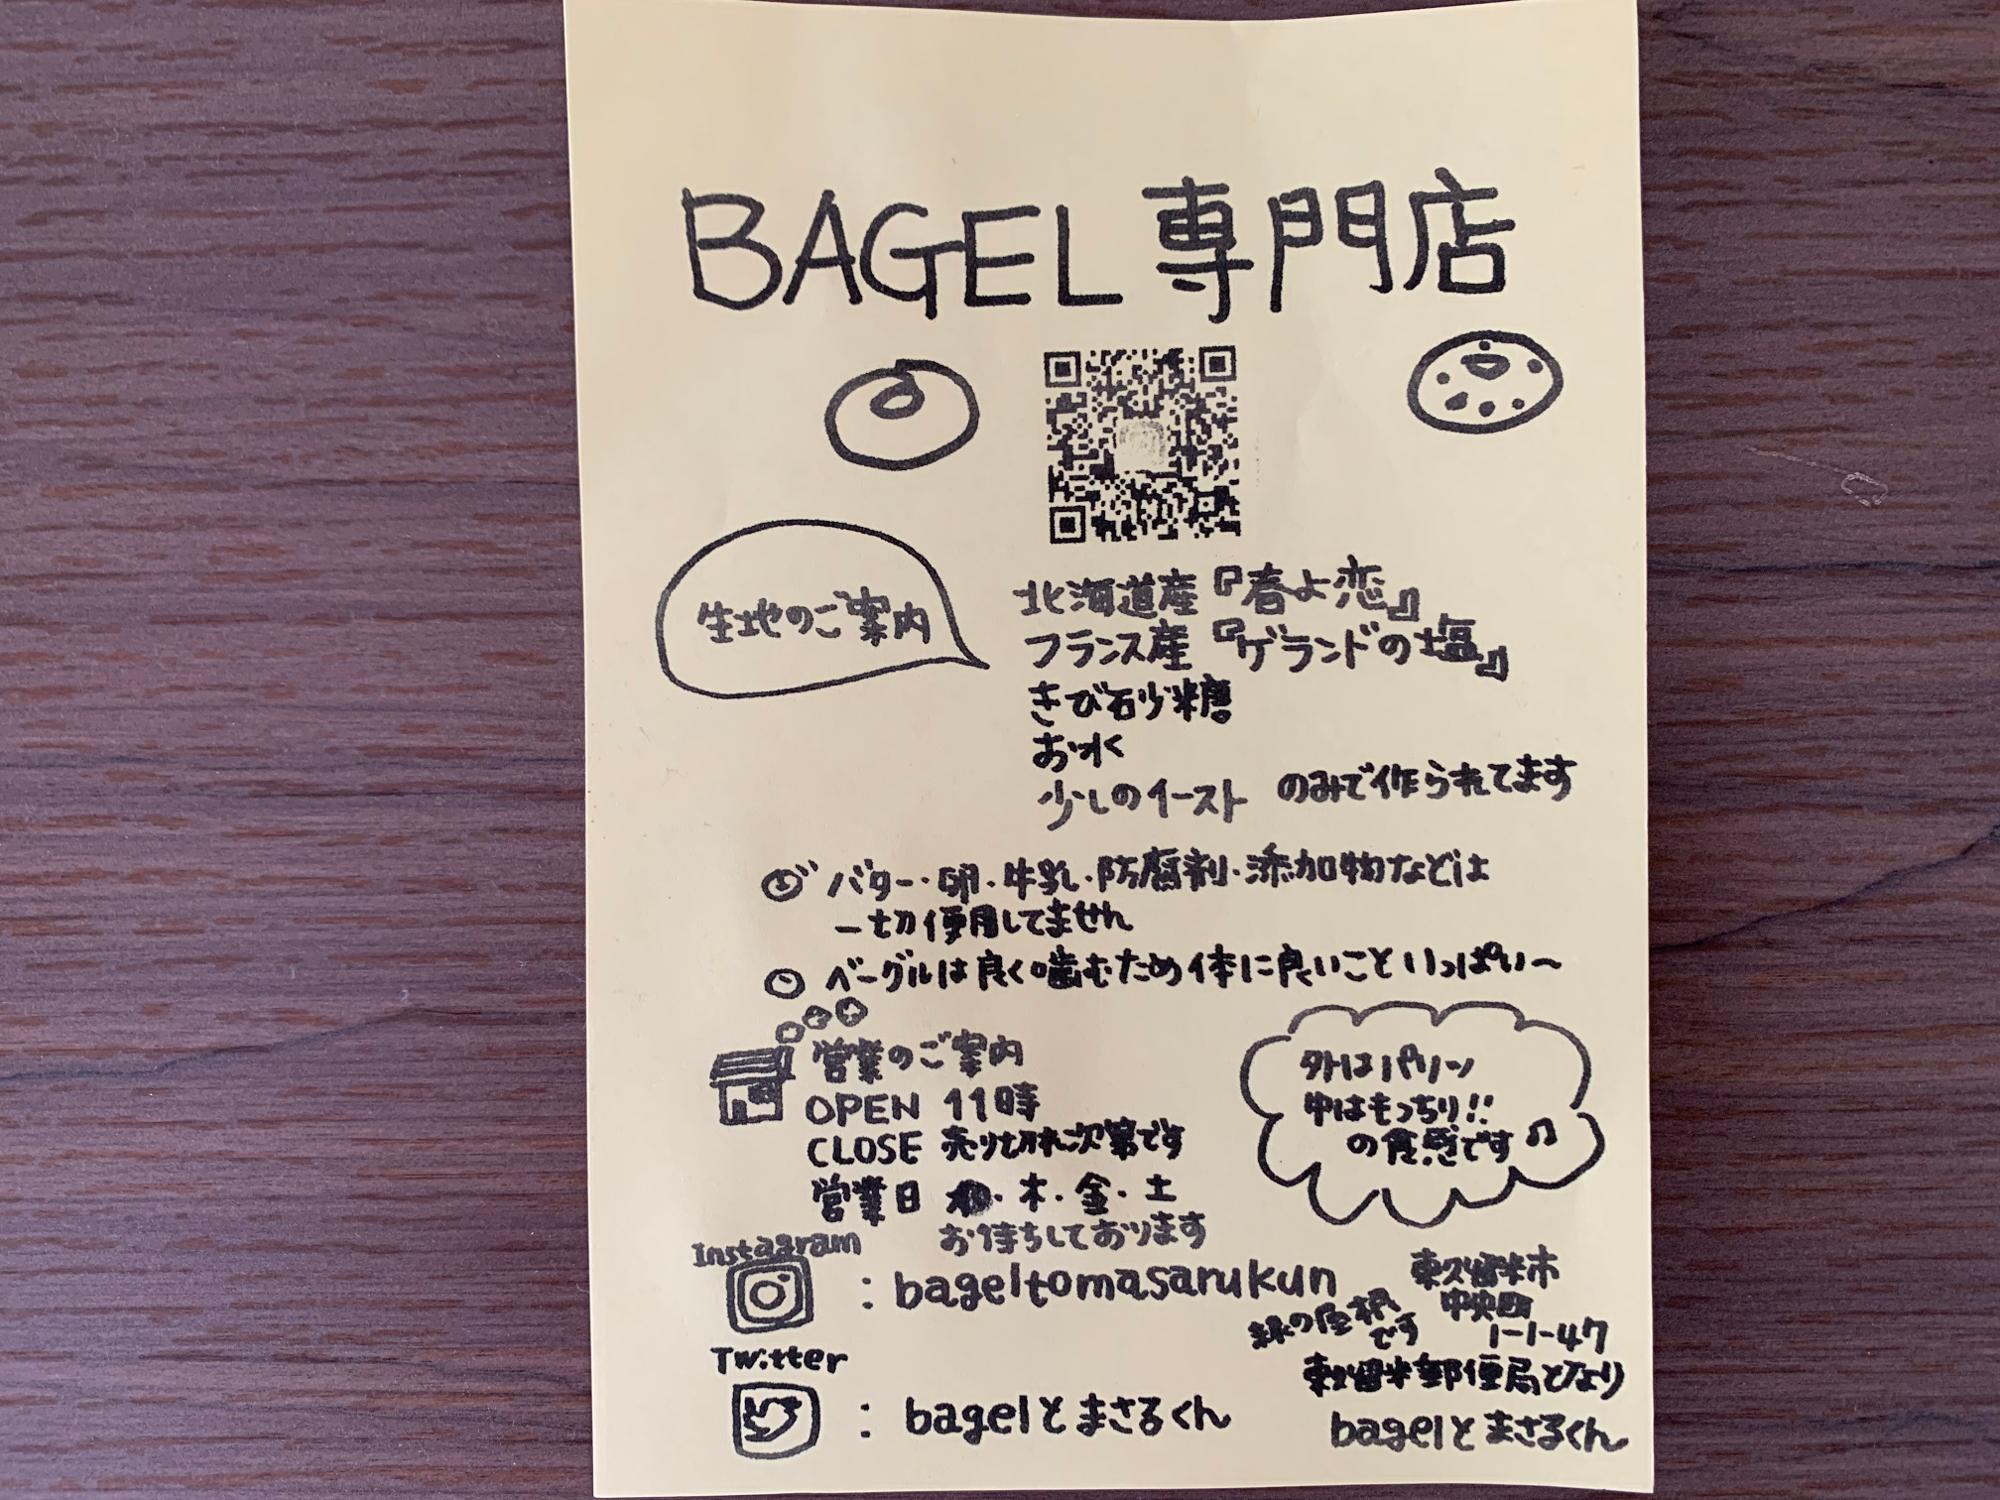 BAGEL 専門店
生地のご案内
北海道産『春よ恋』
フランス産『ゲランドの塩』
きび砂糖
お水
少しのイースト のみで作られてます
バター・卵・牛乳・防腐剤・添加物などは
一切使用してません
ベーグルは良く噛むため体に良いこといっぱい〜
営業のご案内
OPEN 11時
CLOSE 売り切れ次第です
営業日 ・木・金・土
お待ちしております
外はパリッ
中はもっちり!!
の食感です♫
Instagram
: bageltomasarukun
Twitter
: bagelとまさるくん
東久留米市
中央町
1-1-47
緑の屋根
です
東久留米郵便局となり
bagelとまさるくん